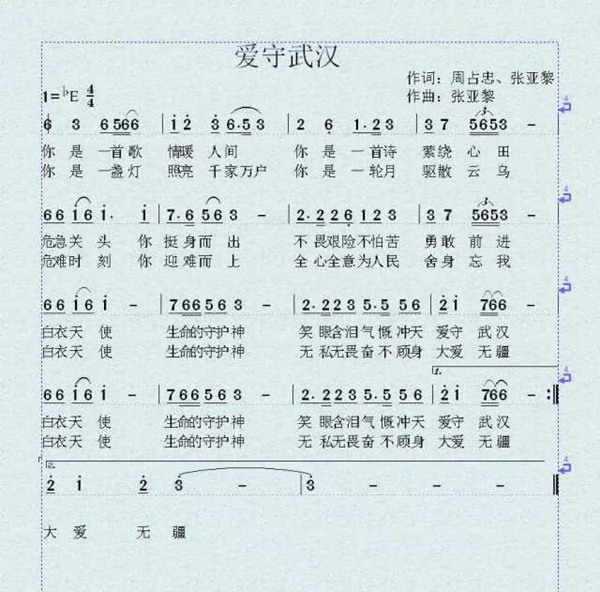 爱守武汉
作词：周占忠、张亚黎
1=♭E 4/4
作曲：张亚黎
6 3 6 566 | i 2 3 6·5 3 | 2 6 1·2 3 | 3 7 5653 -
你 是 一首歌 情暖 人间 你 是 一首诗 萦绕 心 田
你 是 一盏灯 照亮 千家万户 你 是 一轮月 驱散 云 乌
66 i6 i· i | 7·6 563 - | 2·226 123 | 37 5653 -
危急关 头 你 挺身而 出 不 畏艰险不怕苦 勇敢 前 进
危难时 刻 你 迎难而 上 全 心全意为人民 舍身 忘 我
66 i6 i - | 766563 - | 2·2235·5 56 | 2i 766 -
白衣天 使 生命的守护神 笑 眼含泪气 慨冲天 爱守 武 汉
白衣天 使 生命的守护神 无 私无畏奋 不顾身 大爱 无 疆
1.
66 i6 i - | 766563 - | 2·2235·5 56 | 2i 766 - :‖
白衣天 使 生命的守护神 笑 眼含泪气 慨冲天 爱守 武 汉
白衣天 使 生命的守护神 无 私无畏奋 不顾身 大爱 无 疆
2.
2 i 2 3 - | 3 - - - ‖
大 爱 无 疆